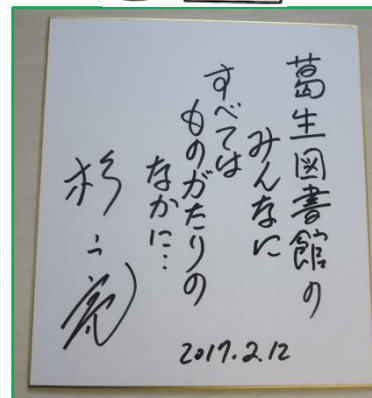 葛生図書館の
みんなに
すべては
ものがたりの
なかに…
杉山亮
2017.2.12